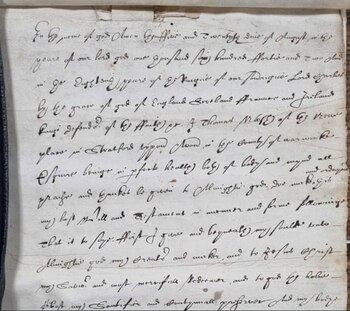 In the name of god Amen the five and Twentieth daie of August in the
yeare of our lord god one thousand six hundred fforties and Two And
in the Eighteenth yeare of the Raigne of our Soveraigne Lord Charles
by the grace of god of England Scotland ffrance and Ireland
Kinge defendor of the ffaith &c I Thomas Nashe of the Newe
place in Stratford uppon Avon in the County of warwicke
Esquire beinge in perfect health both of body and mynde all
praise and thankes be given to Almightie god, doe make
and ordayne
my last will and Testament in manner and forme followinge
That is to saye ffirst I give and bequeath my soule unto
Almightie god my Creator and maker and to Jesus Christ
my Savior and most mercifull Redeemer and to god the holie
Ghost my Sanctifier and Continuall preserver And my bodye